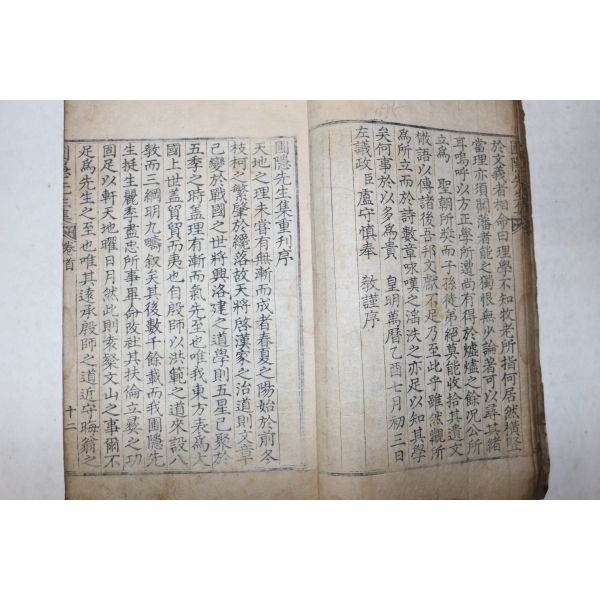 圃隱先生集
於文義者相命曰理學不知牧老所指何居然橫竪
當理亦須關藩者能之獨恨無少論著可以尋其緒
耳嗚呼以方正學所遭尚有得於墟燼之餘況公所
立爲 聖朝所奬而子孫徒弟絕莫能收拾其遺文
懶語以傳諸後吾邦文獻不足乃至此乎雖然觀所
爲所立而於詩數章咏嘆之滛泆之亦足以知其學
矣何事於以多爲貴 皇明萬曆乙酉七月初三日
左議政臣盧守愼奉 敎謹序
圃隱先生集重刊序
天地之理未嘗有無漸而成者春夏之陽始於前冬
枝柯之繁肇於纔落故天將啓漢家之治道則文章
已變於戰國之世將興洛建之道學則五星已聚於
五季之時盖理有漸而氣先至也唯我東方表爲大
國上世盖貿貿而夷也自殷師以洪範之道來設八
敎而三綱明九疇叙矣其後數千餘載而我圃隱先
生挺生麗季盡忠所事畢命改社其扶倫立懿之功
固足以軒天地曜日月然此則亥椉文山之事爾不
足爲先生之至也唯其遠承殷師之道近守晦翁之
圃隱先生集 卷首 十二